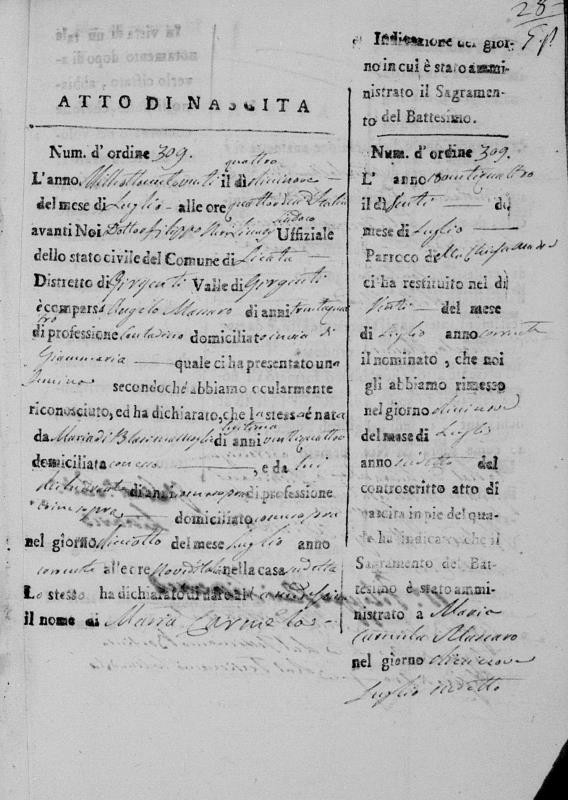 28
ATTO DI NASCITA
Num. d' ordine 309.
quattro
L'anno Milleottocentoventi il di dicinove
del mese di Luglio alle ore quattordici d'Italia
avanti Noi Dottor Filippo Sindaco Uffiziale
dello stato civile del Comune di Licata
Distretto di Girgenti Valle di Girgenti
è comparso Angelo Mauaro di anni trentaquat
tro
di professione Contadino domiciliato in via di
Giammaria quale ci ha presentato una
Femina secondoché abbiamo ocularmente
riconosciuto, ed ha dichiarato, che la stessa é nata
da Maria di Blasi sua moglie legitima di anni ventiquattro
domiciliata come sopra, e da lui
dichiarante di anni come sopra di professione
come sopra domiciliato come sopra
nel giorno diciotto del mese Luglio anno
corrente alle ore nove d'Italia nella casa sudetta
Lo stesso ha dichiarato di dare al
il nome di Maria Carmela
Indicazione del gior-
no in cui è stato ammi-
nistrato il Sagramen-
to del Battesimo.
Num. d' ordine 309.
L' anno ventiquattro
il di venti du
mese di Luglio
Parroco della Chiesa Madre
ci ha restituito nel di
Venti del mese
di Luglio anno corrente
il nominato, che noi
gli abbiamo rimesso
nel giorno dicinove
del mese di Luglio
anno sudetto del
controscritto atto di
nascita in pie del qua-
le ha indicato, che il
Sagramento del Bat-
tesimo è stato ammi-
nistrato a Maria
Carmela Mauaro
nel giorno dicinove
Luglio sudetto